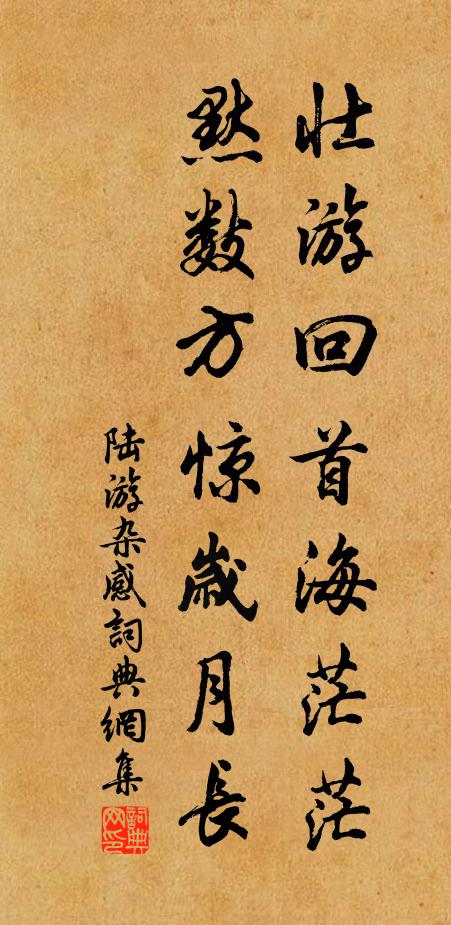 壮游回首海茫茫
默数方惊歳月長
陆游杂感詞典網集
詞典网印